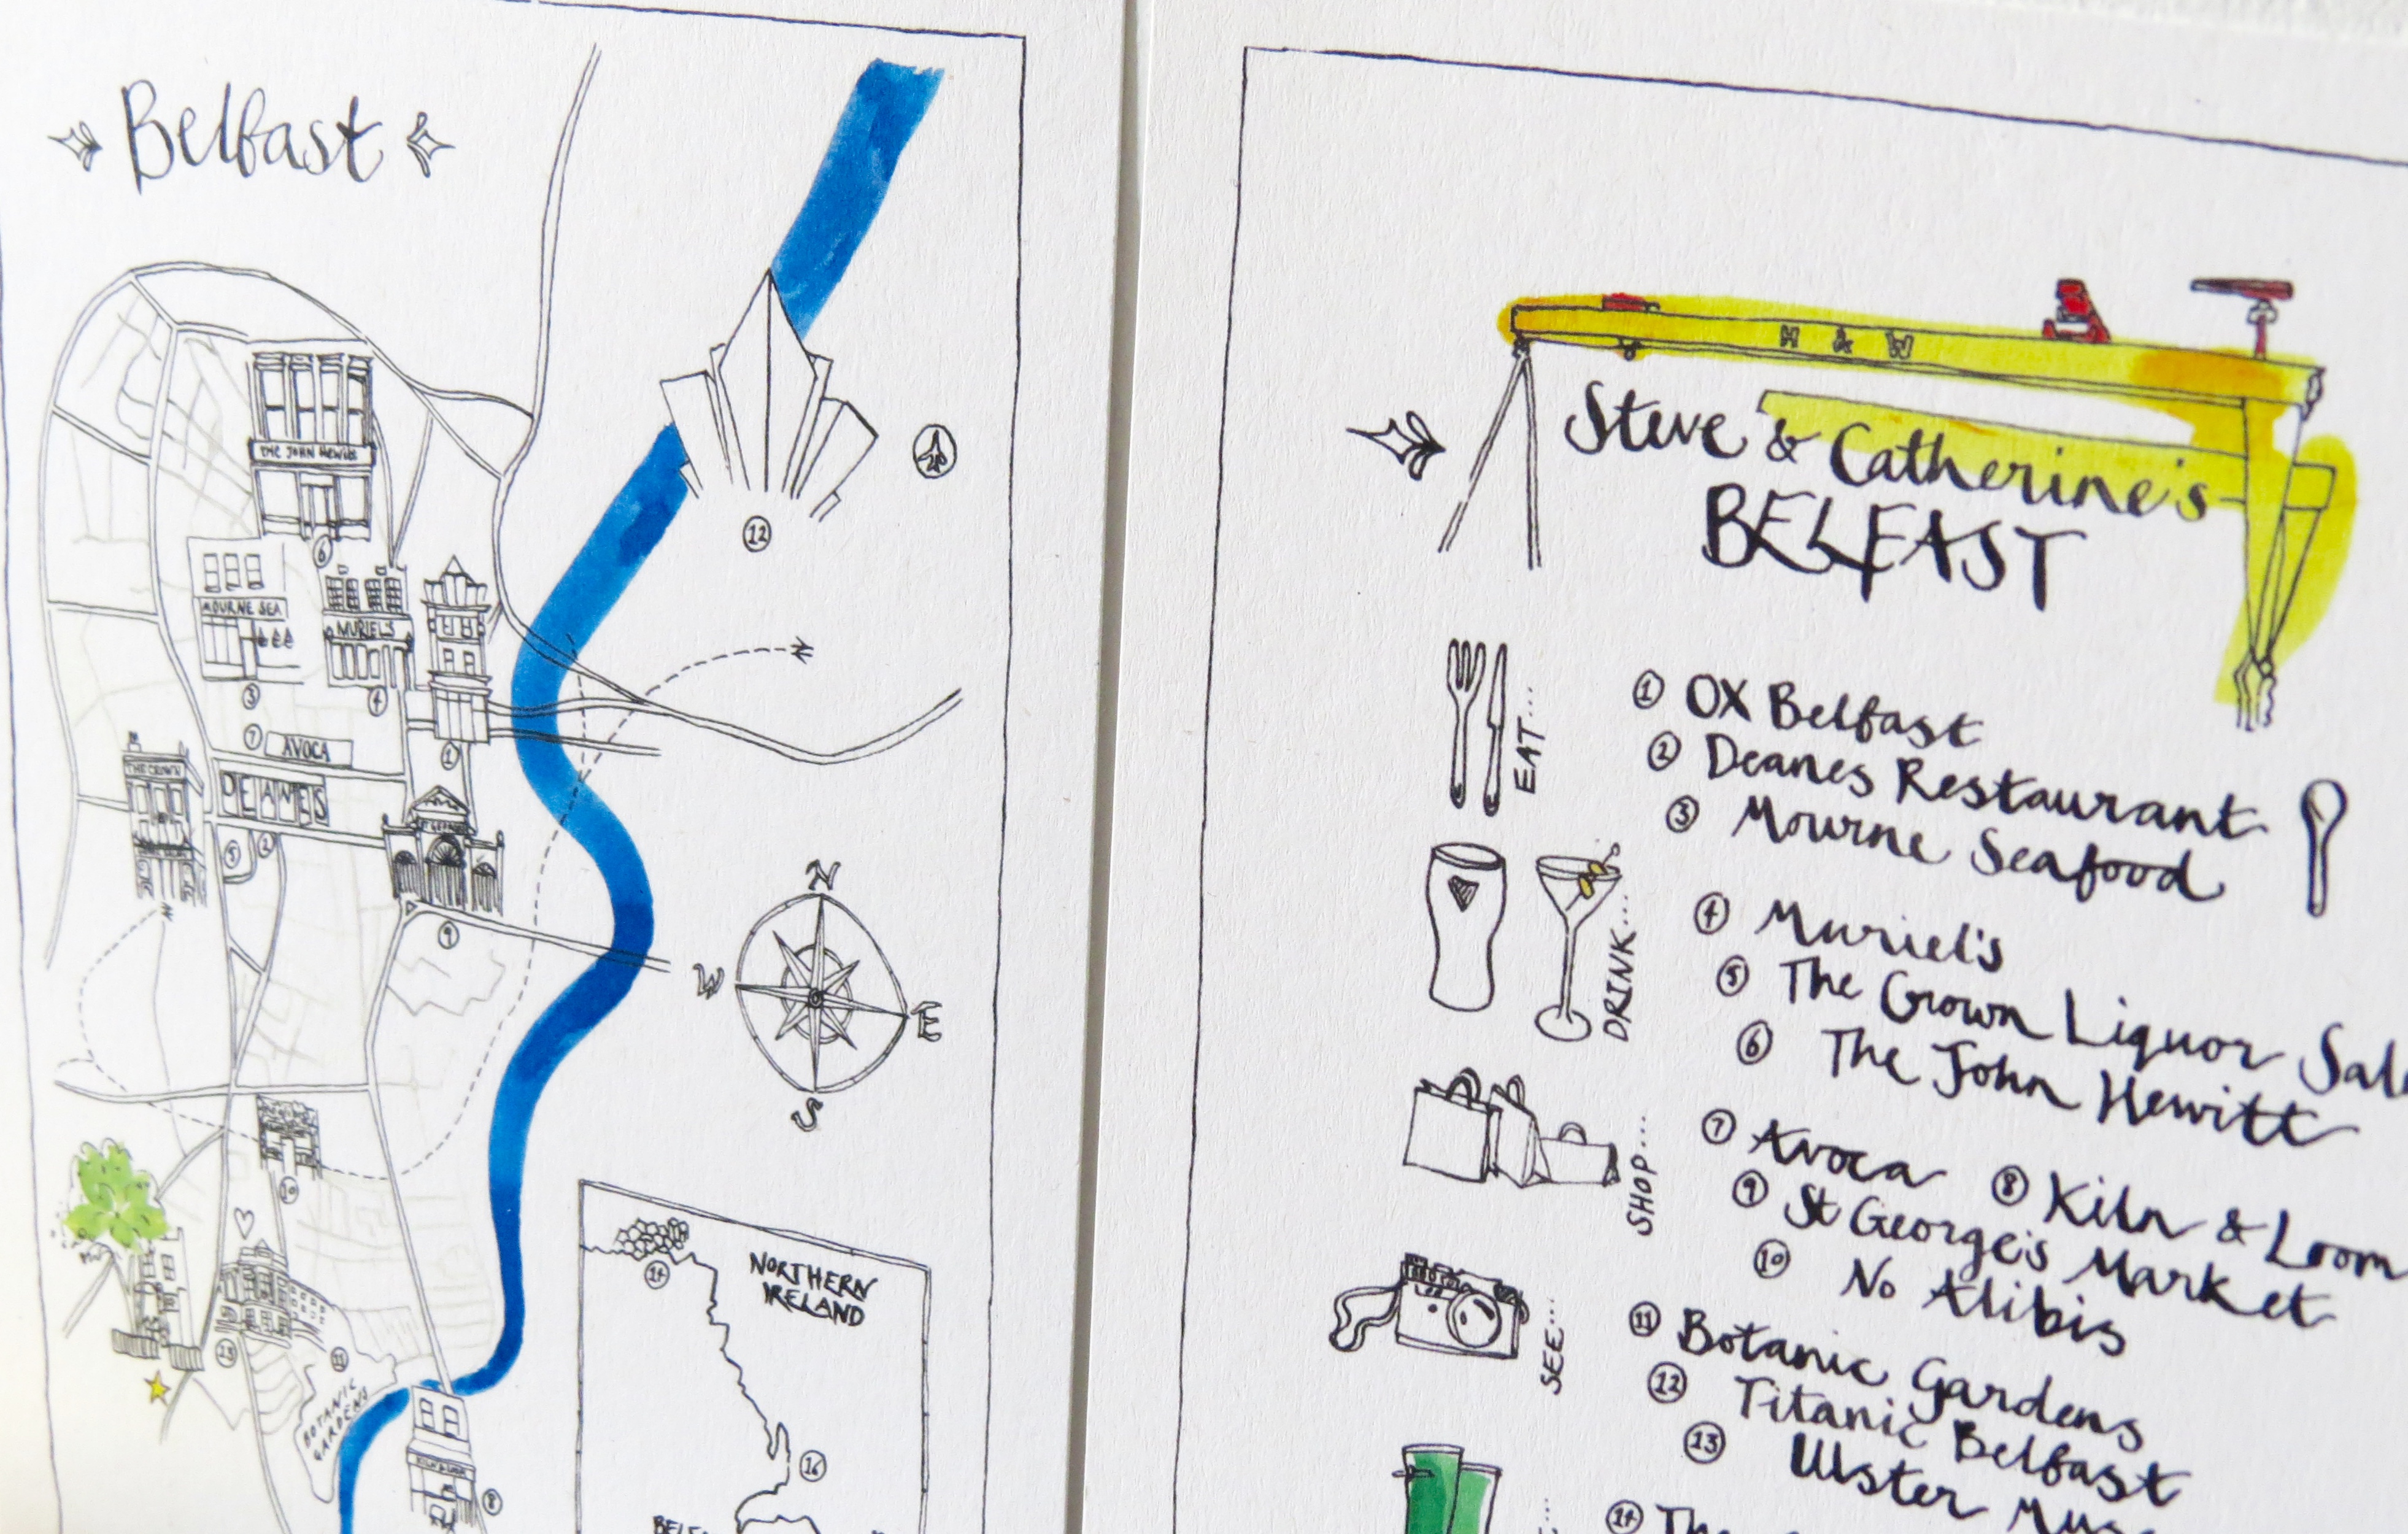 Belfast
THE JOHN HEWITT
6
MOURNE SEA
MURIEL'S
3
4
7 AVOCA
1
THE CROWN
DEANES
5 2
9
12
N
W
E
S
10
13
11
BOTANIC
GARDENS
8
14
NORTHERN
IRELAND
16
H & W
Steve & Catherine's
BELFAST
EAT...
1 OX Belfast
2 Deanes Restaurant
3 Mourne Seafood
DRINK...
4 Muriel's
5 The Crown Liquor
6 The John Hewitt
SHOP...
7 Avoca 8 Kiln & Loom
9 St George's Market
10 No Alibis
SEE...
11 Botanic Gardens
12 Titanic Belfast
13 Ulster
14 The